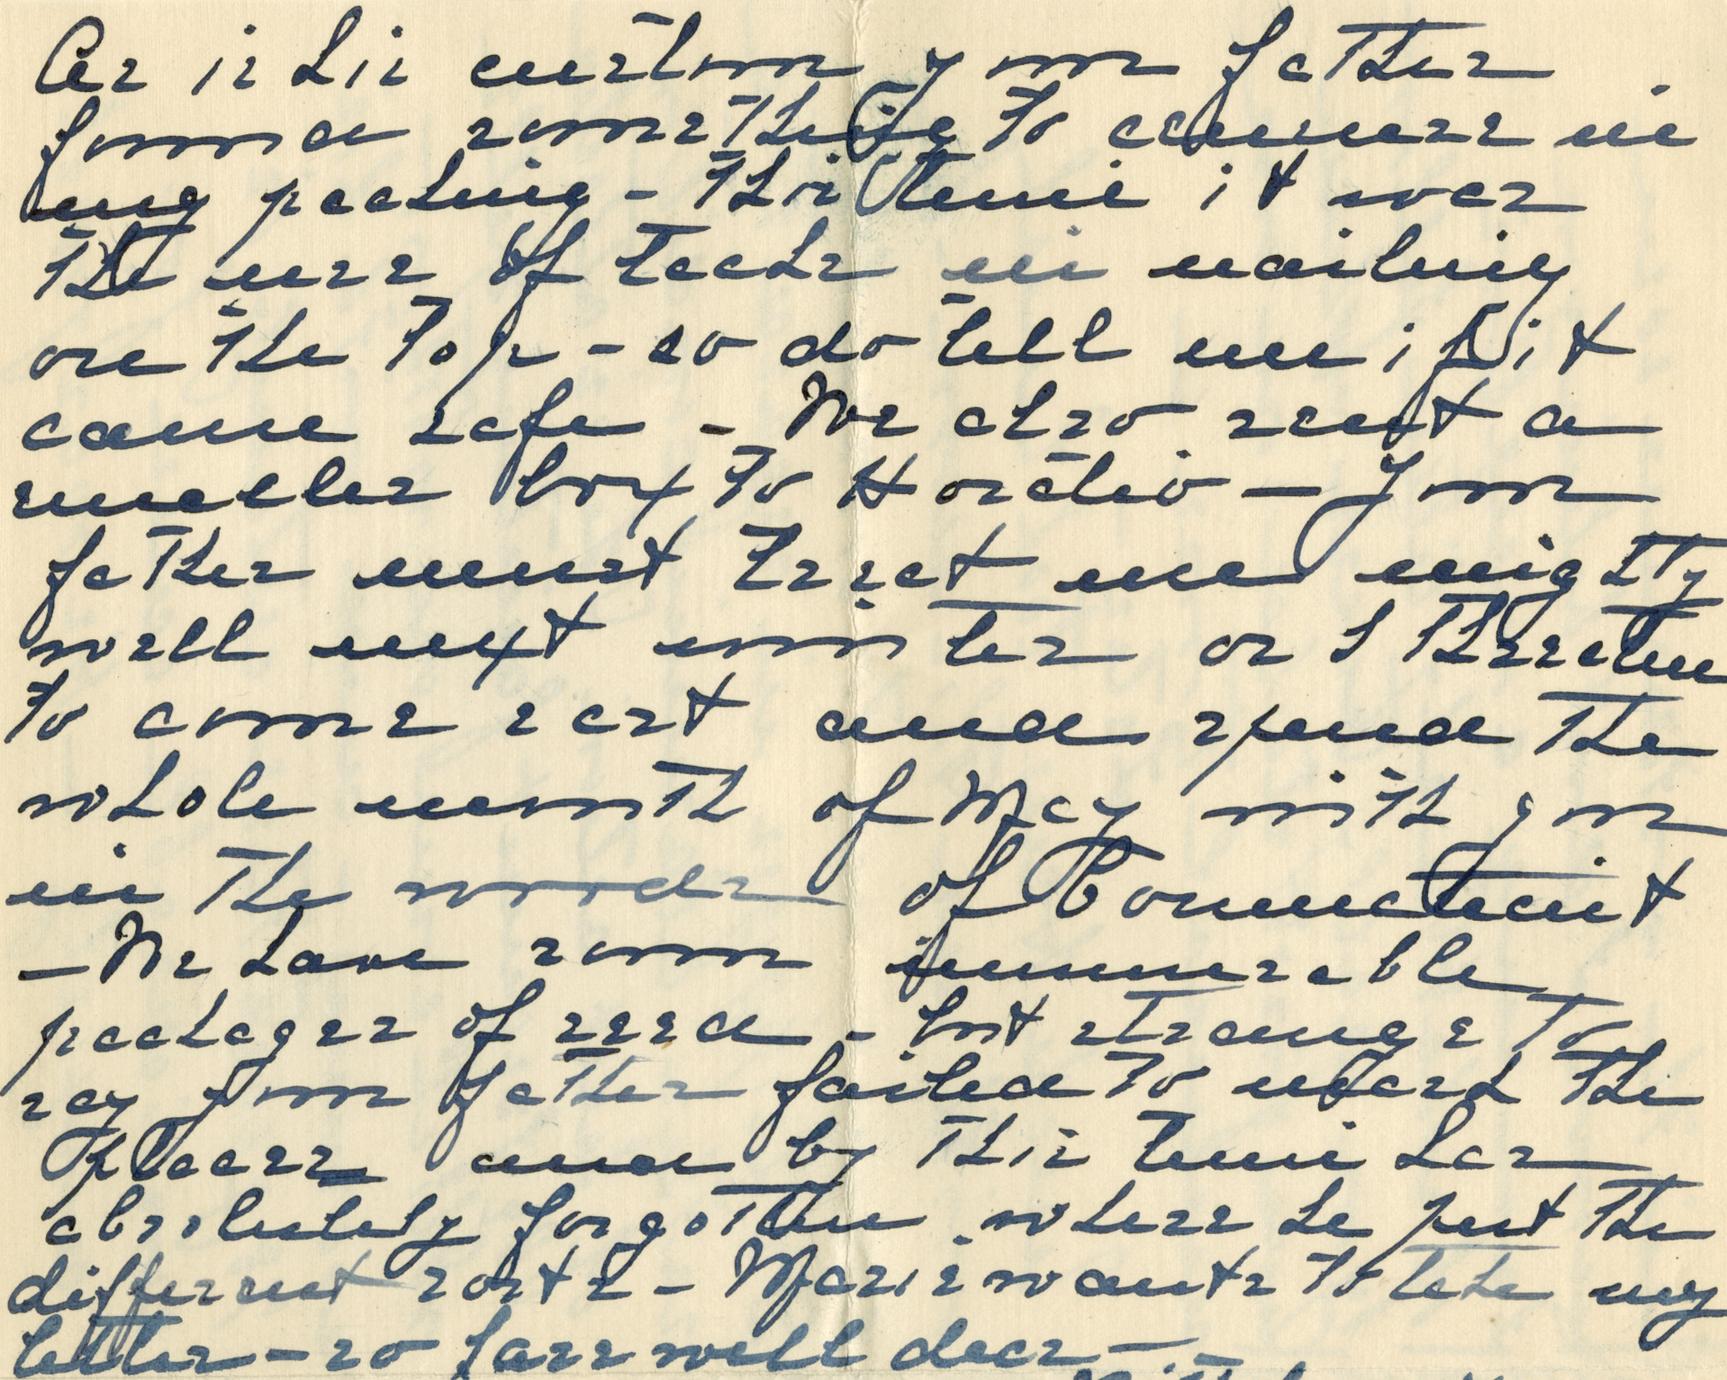 As is his custom your father
found something to censure in
my packing - this time it was
the use of tacks in nailing
on the top - so do tell me if it
came safe - We also sent a
smaller box to Horatio - Your
father must treat me mighty
well next winter or I threaten
to come east and spend the
whole month of May with you
in the woods of Connecticut
- We have sown innumerable
packages of seed - but strange to
say your father failed to mark the
places and by this time has
absolutely forgotten where he put the
different sorts - Marie wants to take my
letter - so farewell dear -